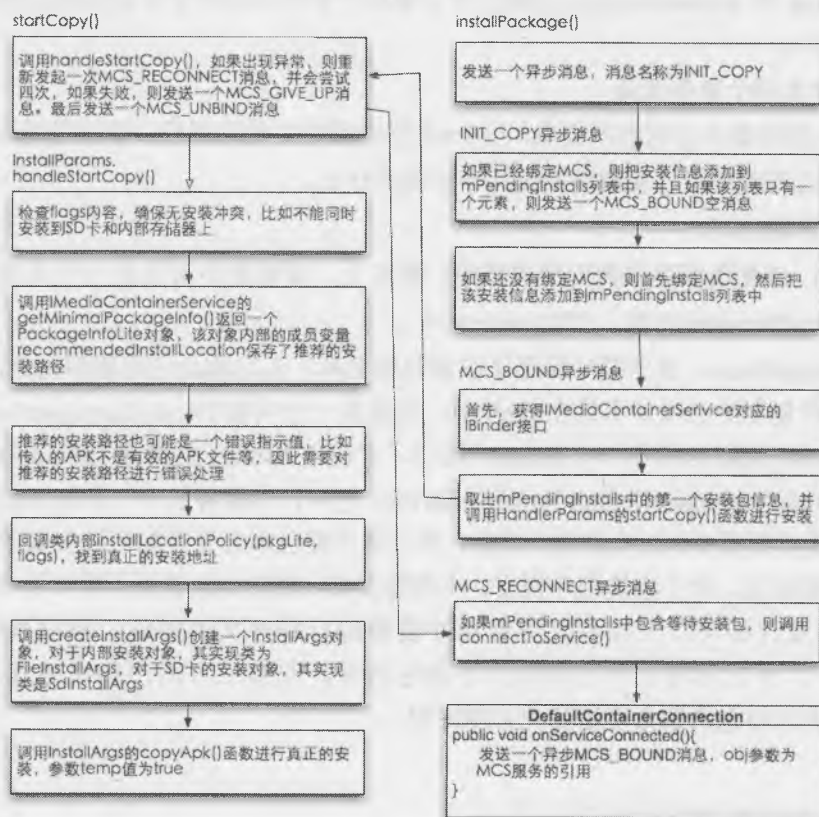 startCopy()
调用handleStartCopy()，如果出现异常、则重
新发起一次MCS_RECONNECT消息，并会尝试
四次，如果失败，则发送一个MCS_GIVE_UP消
息。最后发送一个MCS_UNBIND消息
InstallParams.
handleStartCopy()
检查flags内容，确保无安装冲突，比如不能同时
安装到SD卡和内部存储器上
调用IMediaContainerService的
getMinimalPackageInfo()返回一个
PackageInfoLite对象，该对象内部的成员变量
recommendedInstallLocation保存了推荐的安
装路径
推荐的安装路径也可能是一个错误指示值，比如
传入的APK不是有效的APK文件等，因此需要对
推荐的安装路径进行错误处理
回调类内部installLocationPolicy(pkgLite,
flags)，找到真正的安装地址
调用createInstallArgs()创建一个InstallArgs对
象，对于内部安装对象，其实现类为
FileInstallArgs，对于SD卡的安装对象，其实现
类是SdInstallArgs
调用InstallArgs的copyApk()函数进行真正的安
装，参数temp值为true
installPackage()
发送一个异步消息，消息名称为INIT_COPY
INIT_COPY异步消息
如果已经绑定MCS，则把安装信息添加到
mPendingInstalls列表中，并且如果该列表只有一
个元素，则发送一个MCS_BOUND空消息
如果还没有绑定MCS，则首先绑定MCS，然后把
该安装信息添加到mPendingInstalls列表中
MCS_BOUND异步消息
首先，获得IMediaContainerSerivice对应的
IBinder接口
取出mPendingInstalls中的第一个安装包信息，并
调用HandlerParams的startCopy()函数进行安装
MCS_RECONNECT异步消息
如果mPendingInstalls中包含等待安装包，则调用
connectToService()
DefaultContainerConnection
public void onServiceConnected(){
发送一个异步MCS_BOUND消息，obj参数为
MCS服务的引用
}